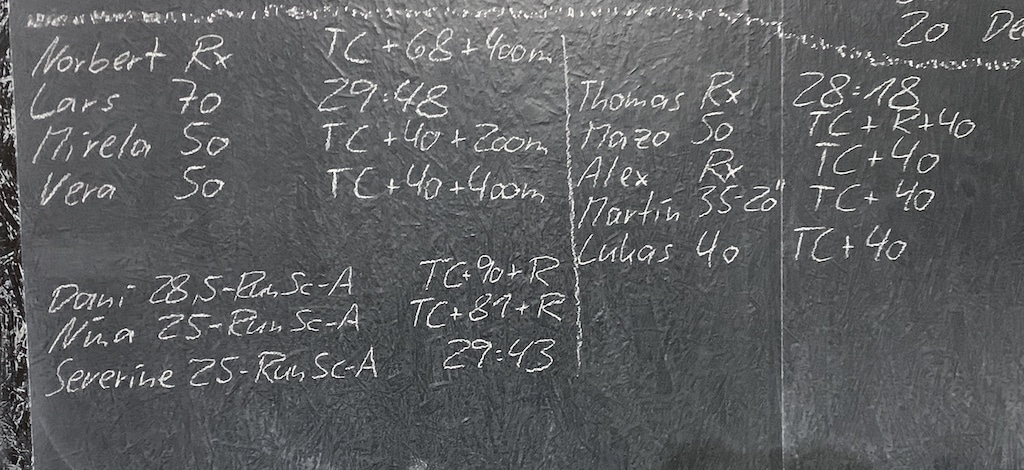 20 De
Norbert Rx TC+68+400m
Lars 70 29:48
Mirela 50 TC+40+200m
Vera 50 TC+40+400m
Dani 28,5-Run Sc-A TC+90+R
Nina 25-Run Sc-A TC+81+R
Severine 25-Run Sc-A 29:43
Thomas Rx 28:18
Mazo 50 TC+R+40
Alex Rx TC+40
Martin 35-20" TC+40
Lukas 40 TC+40